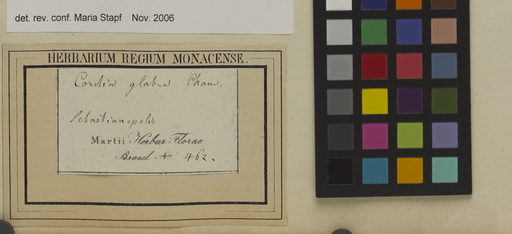 det. rev. conf. Maria Stapf Nov. 2006
HERBARIUM REGIUM MONACENSE.
Cordia glabra Cham.
Sebastianopolis
Martii Herbar Florae
Brasil. No. 462.